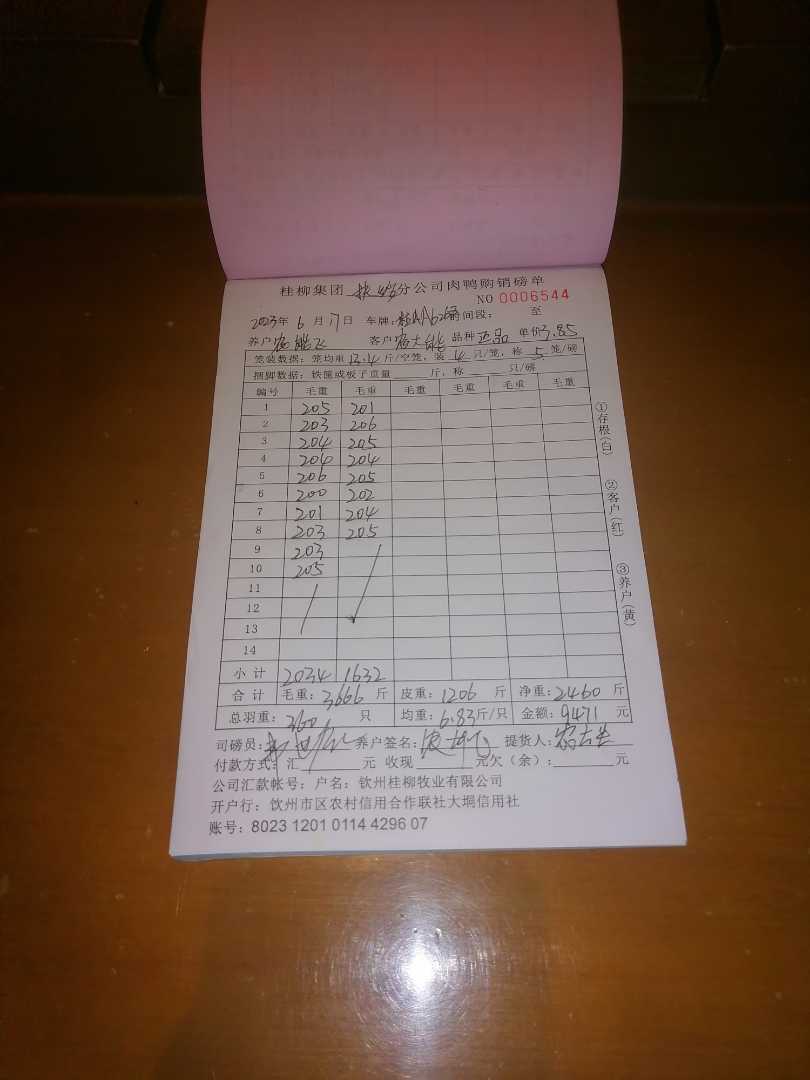 桂柳集团 分公司肉鸭购销磅单
NO 0006544
2023年 6 月 17 日 车牌: 时间段: 至
养户 客户 品种 正品 单价3.85
笼装数据: 笼均重 13.4 斤/空笼, 装 4 只/笼, 称 5 笼/磅
捆脚数据: 铁筐或板子页量 斤, 称 只/磅
编号 毛重 毛重 毛重 毛重 毛重 毛重
1 205 201
2 203 206
3 204 205
4 204 204
5 206 205
6 200 202
7 201 204
8 203 205
9 203
10 205
11
12
13
14
小计 2034 1632
合计 毛重: 3666 斤 皮重: 1206 斤 净重: 2460 斤
总羽重: 360 只 均重: 6.83斤/只 金额: 9471 元
①存根(白)
②客户(红)
③养户(黄)
司磅员: 养户签名: 提货人:
付款方式: 汇 元 收现 元欠(余): 元
公司汇款帐号: 户名: 钦州桂柳牧业有限公司
开户行: 钦州市区农村信用合作联社大垌信用社
账号: 8023 1201 0114 4296 07